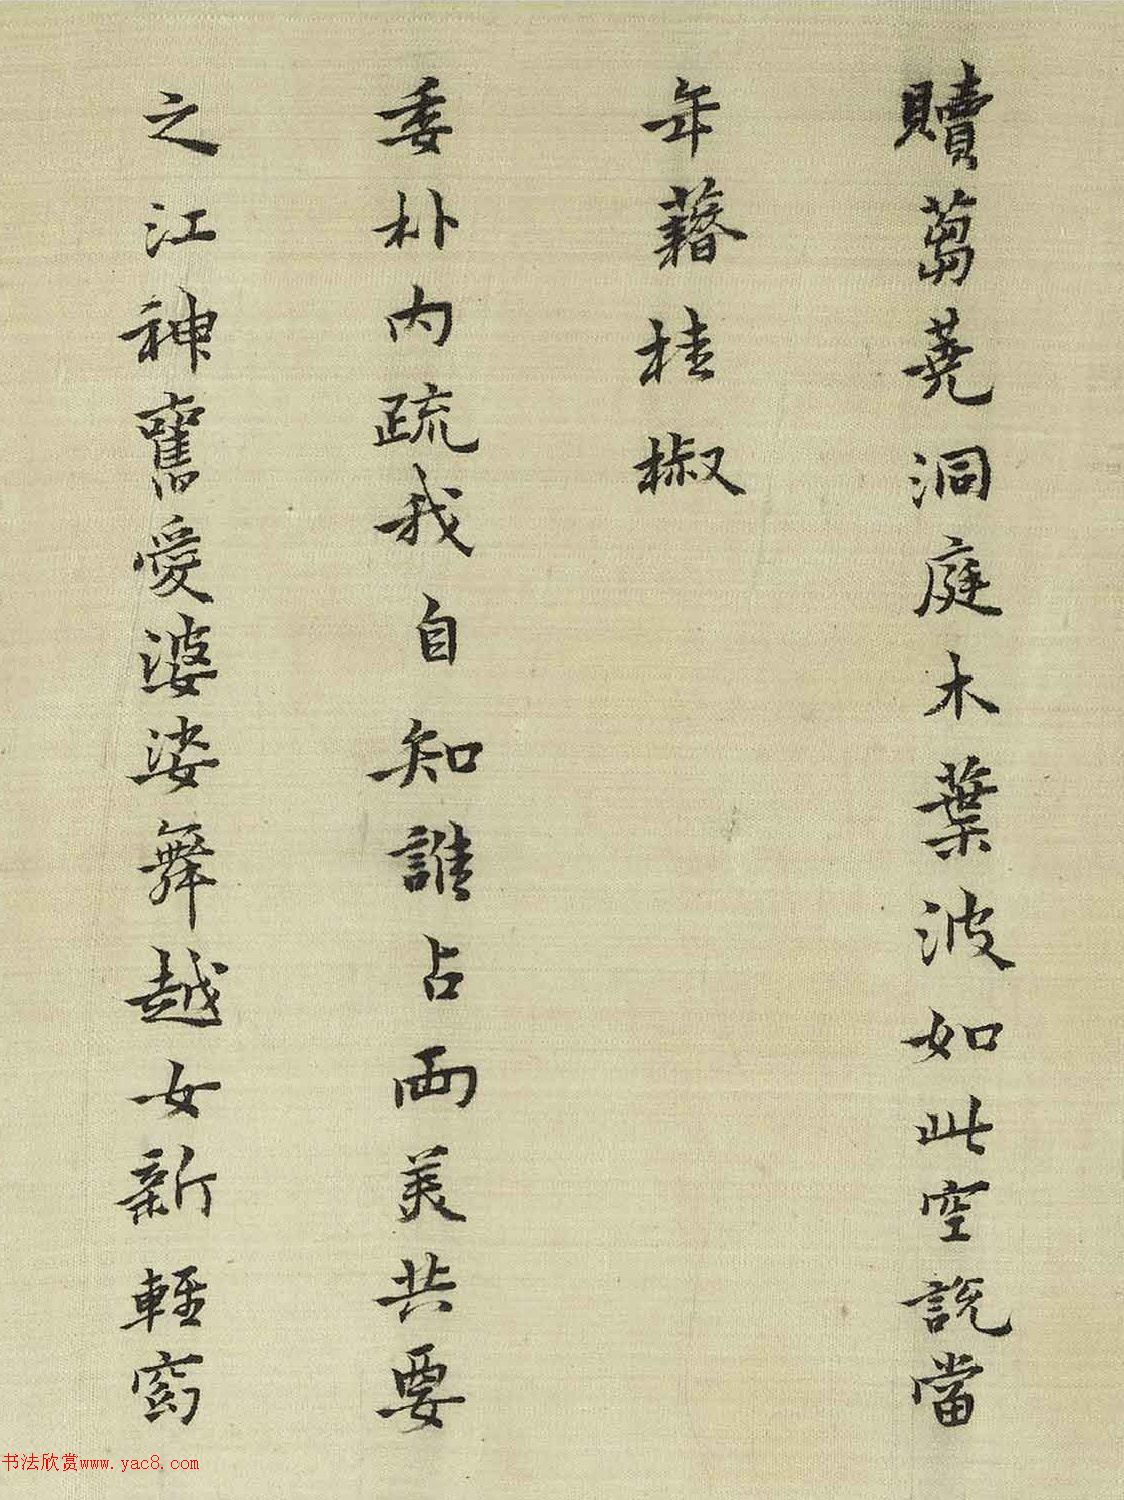 贖蒭蕘洞庭木葉波如此空說當
年藉桂椒
委朴内疏我自知誰占兩美共要
之江神舊愛婆娑舞越女新輕窈
书法欣赏www.yac8.com